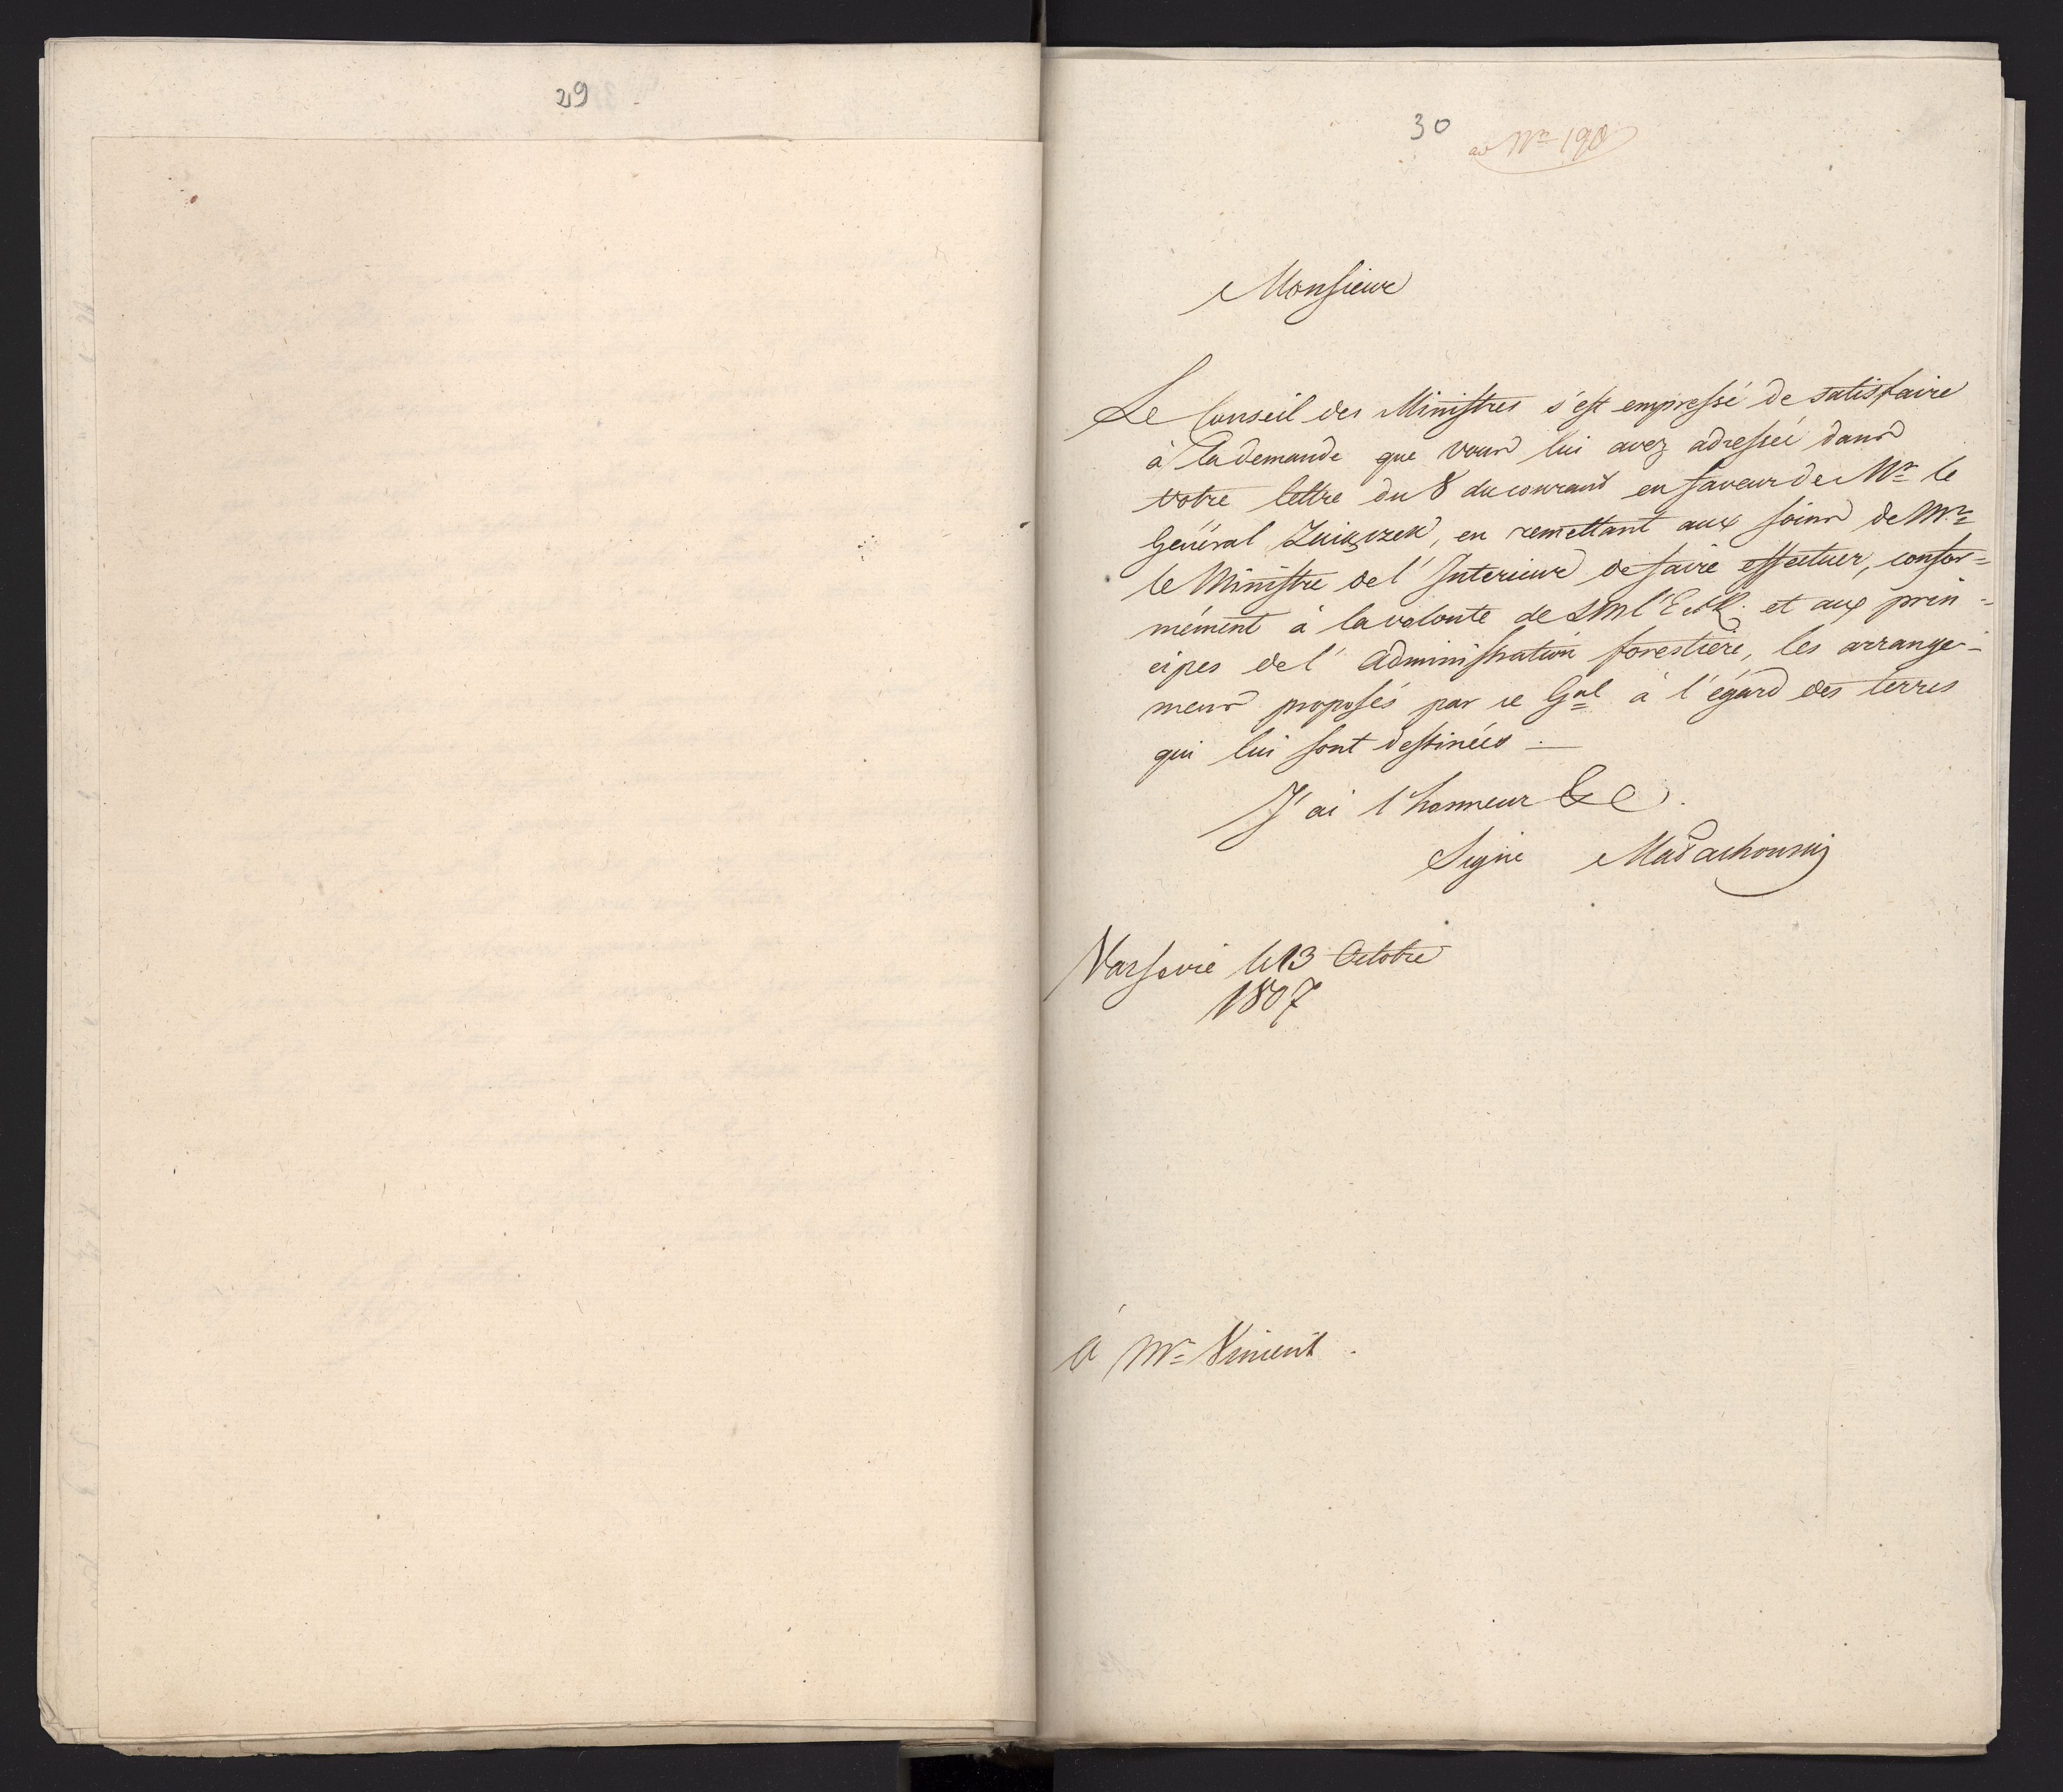 29
30
ad Nro 190
Monsieur
Le Conseil des Ministres s'est empressé de satisfaire
à la demande que vous lui avez adressée dans
votre lettre du 8 du courant en faveur de Mr le
Général Zaiączek, en remettant aux soins de Mr
le Ministre de l'Interieur de faire effectuer, confor=
mément à la volonte de SM l'E et R. et aux prin=
cipes de l'administration forestière, les arrange=
mens proposés par ce Gal à l'égard des terres
qui lui sont destinées.
J'ai l'honneur &c.
Signé Małachowski
Varsovie le 13 Octobre
1807
à Mr Vincent.